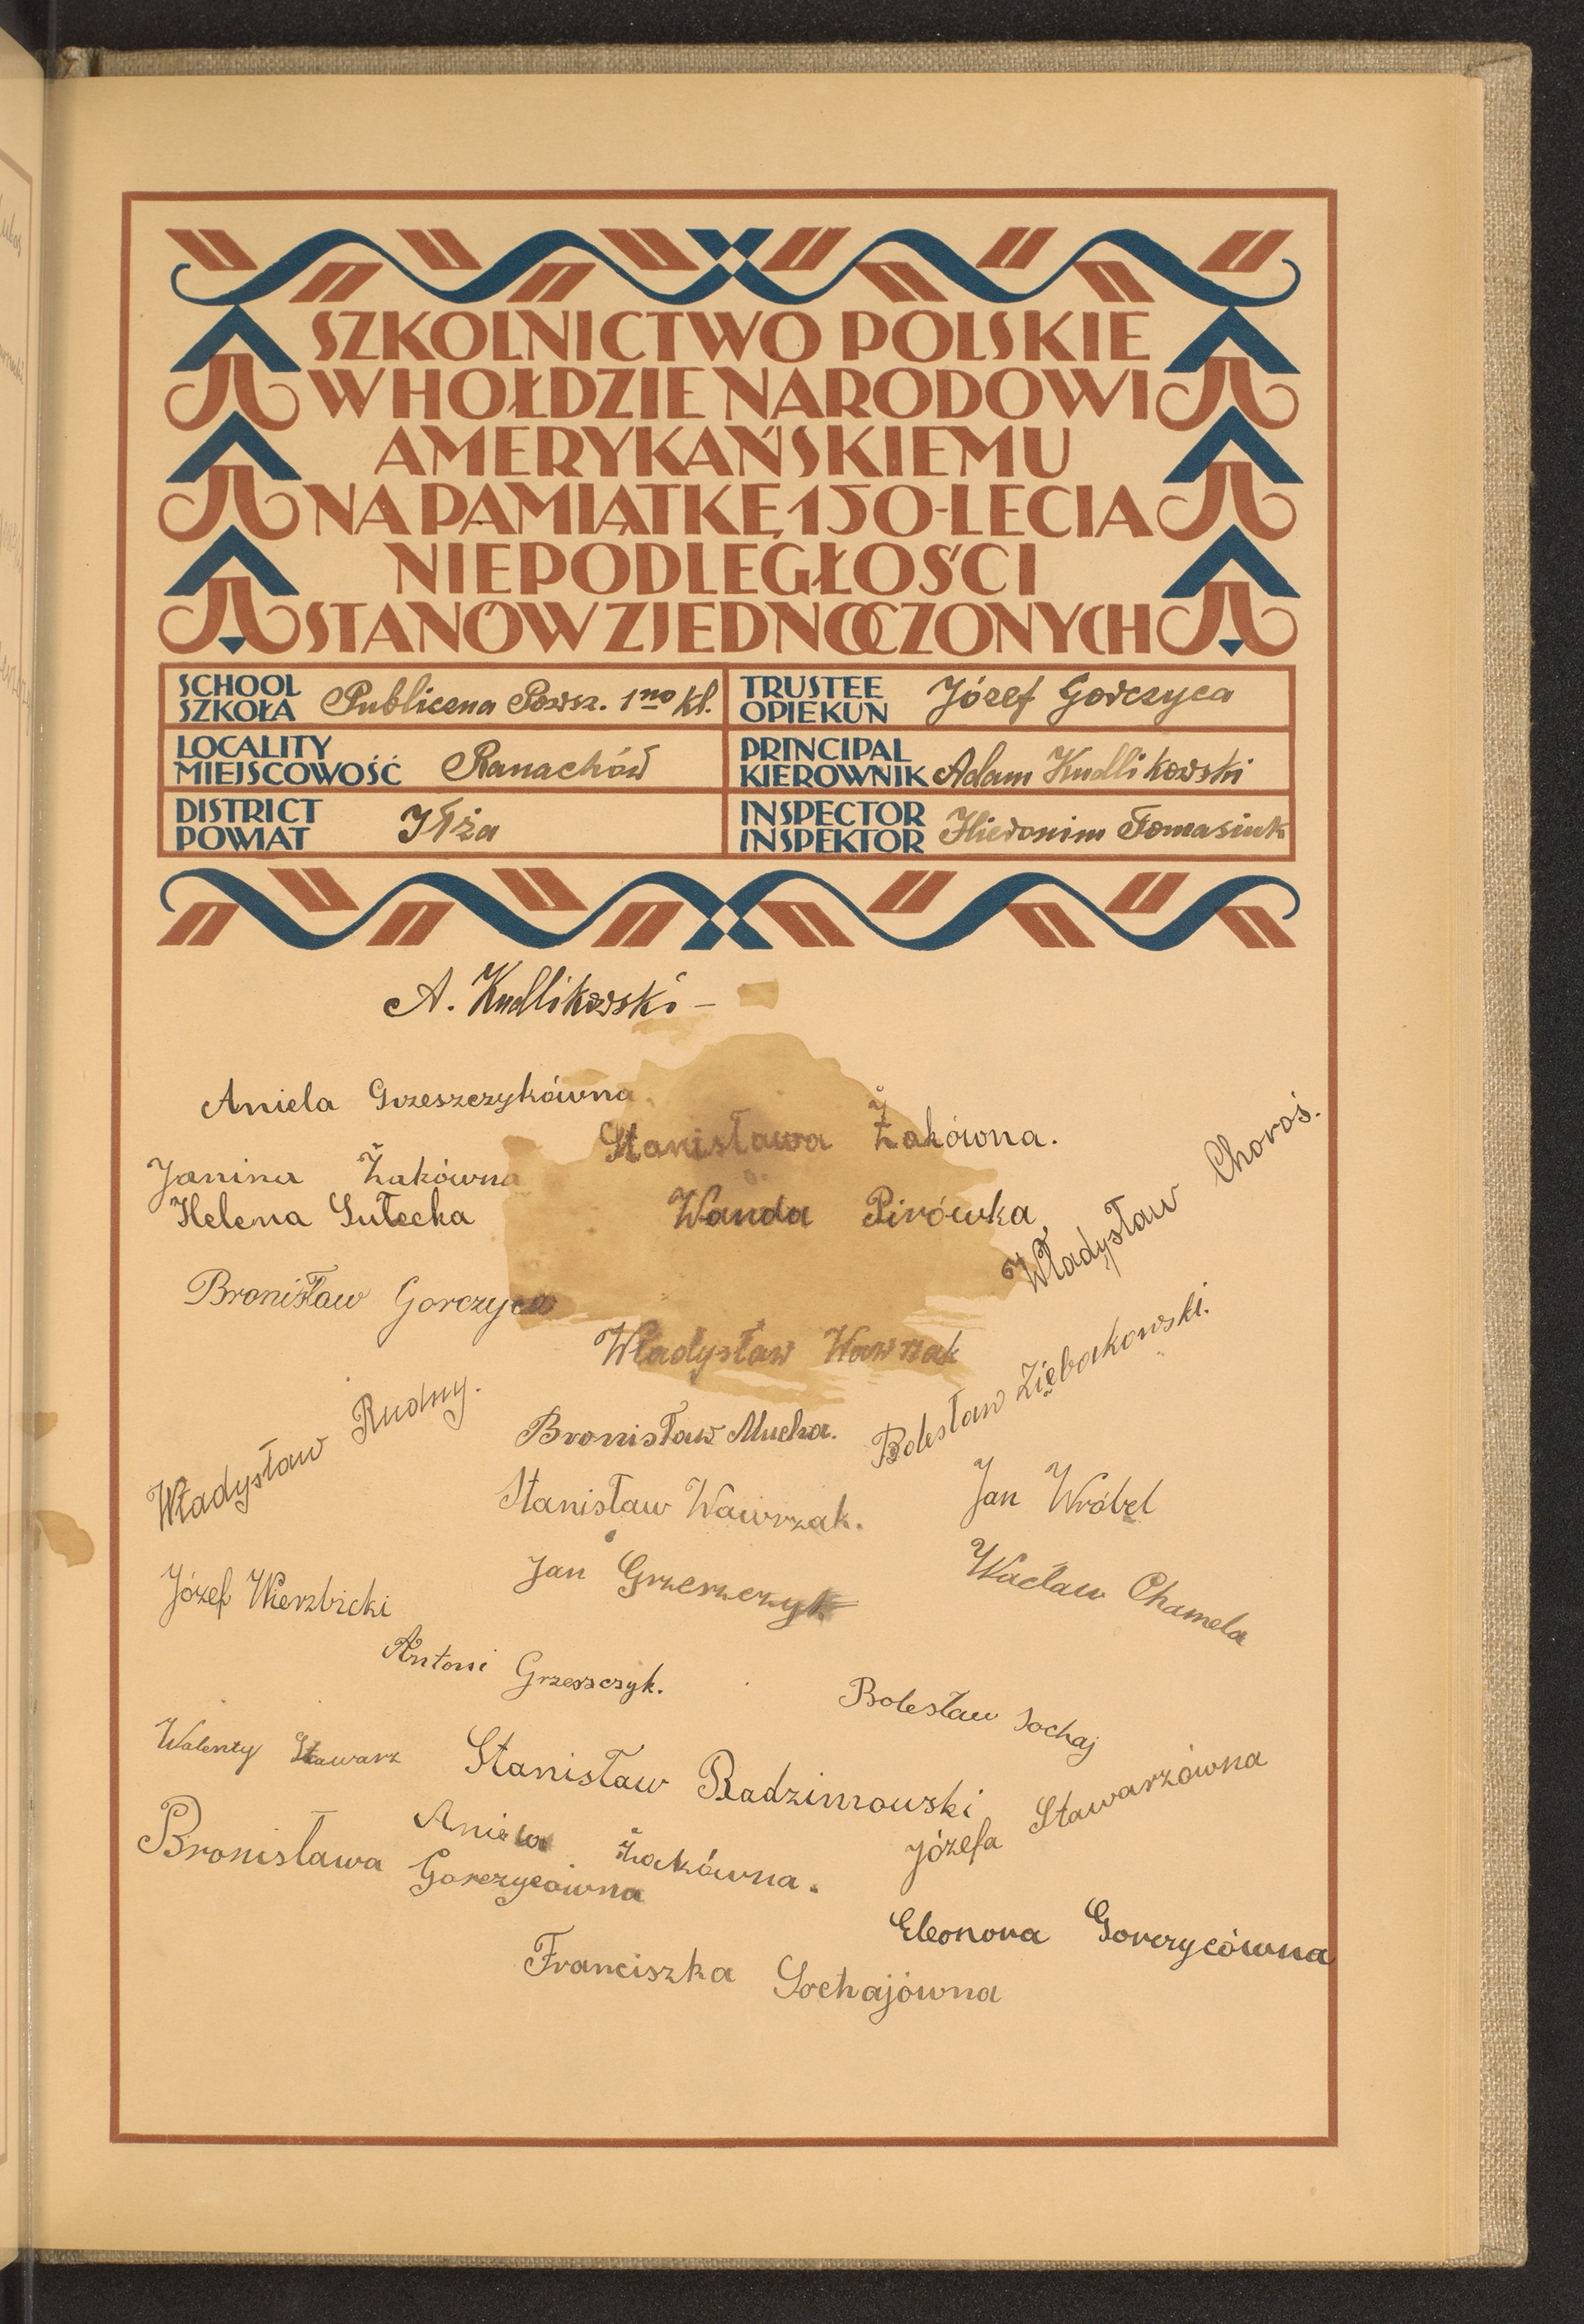 SZKOLNICTWO POLSKIE
W HOŁDZIE NARODOWI
AMERYKAŃSKIEMU
NA PAMIĄTKĘ 150-LECIA
NIEPODLEGŁOŚCI
STANÓW ZJEDNOCZONYCH
SCHOOL
SZKOŁA Publiczna Powsz. 1no kl.
TRUSTEE
OPIEKUN Józef Gorczyca
LOCALITY
MIEJSCOWOŚĆ Ranachów
PRINCIPAL
KIEROWNIK Adam Kudlikowski
DISTRICT
POWIAT Iłża
INSPECTOR
INSPEKTOR Hieronim Tomasiuk
A. Kudlikowski -
Aniela Grzeszczykówna
Stanisława Żakówna.
Janina Żakówna
Helena Sułecka
Wanda Pirówka
Władysław Choroś.
Bronisław Gorczyca
Władysław Wawrzak
Bolesław Ziębakowski.
Władysław Rudny.
Bronisław Mucha.
Stanisław Wawrzak.
Jan Wróbel
Józef Wierzbicki
Jan Grzeszczyk
Wacław Chamela
Antoni Grzeszczyk.
Bolesław Sochaj
Walenty Stawarz
Stanisław Radzimowski
Józefa Stawarzówna
Aniela Żakówna.
Bronisława Gorczycówna
Eleonora Gorczycówna
Franciszka Sochajówna